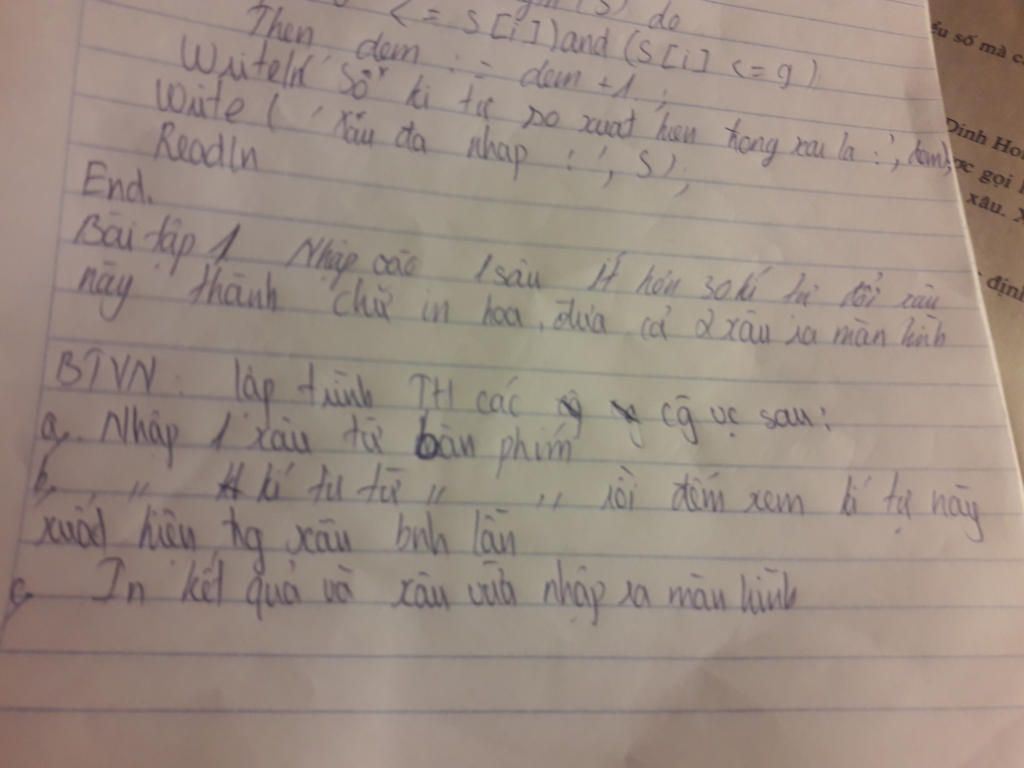 <= S[i]) and (S[i] <= 9)
Then dem := dem +1;
Writeln( 'Số kí tự so xuat hien trong xau la :', dem);
Write ( 'xâu đa nhap :', S);
Readln
End.
Bài tập 1 Nhập vào 1 sâu ít hơn 30 kí tự đổi xâu
này thành chữ in hoa, đưa cả 2 xâu ra màn hình
BTVN: lập trình TH các cg vc sau:
a, Nhập 1 xâu từ bàn phím
b, " kí tự từ " " rồi đếm xem kí tự này
xuất hiện tg xâu bnh lần
c, In kết quả và xâu vừa nhập ra màn hình
ếu số mà c
Dinh Ho
ợc gọi
xâu. X
định